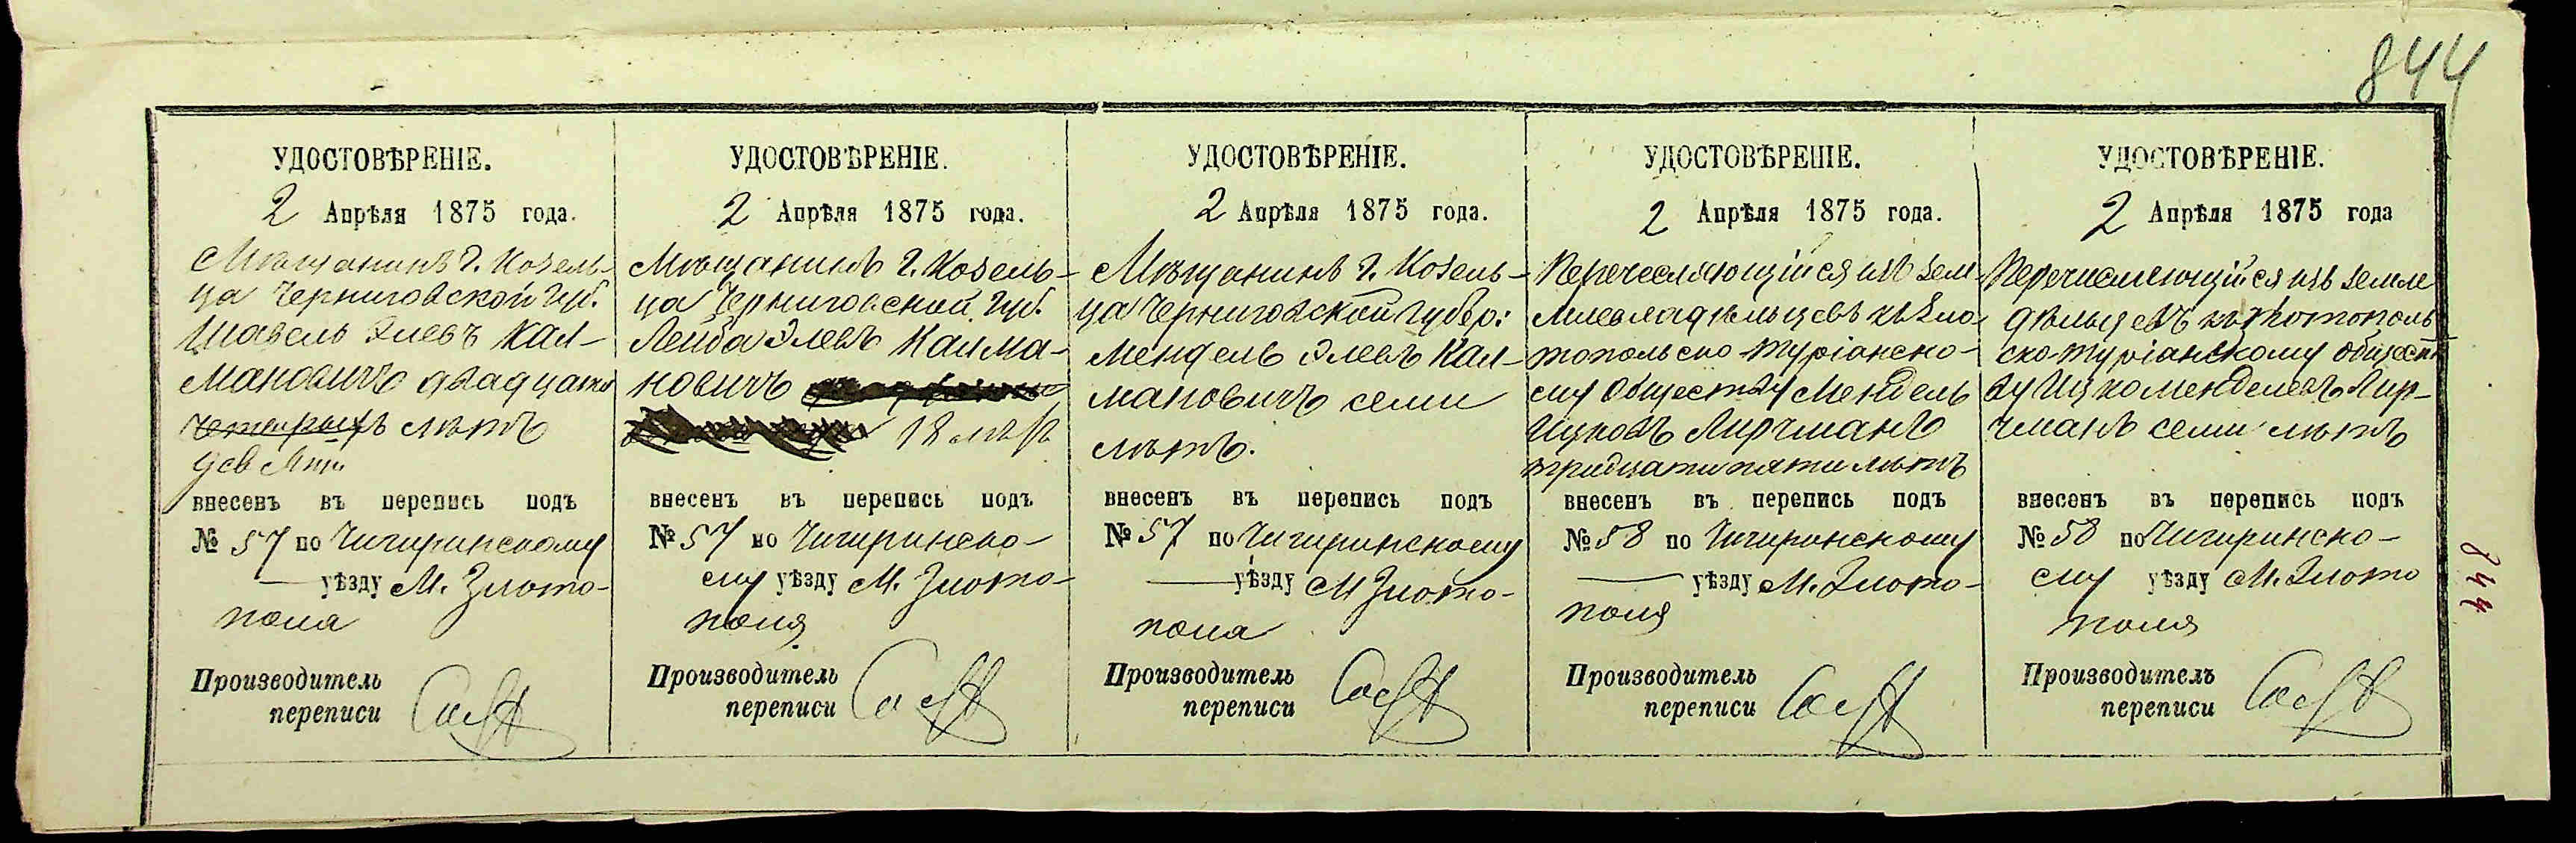 844
УДОСТОВѢРЕНІЕ.
2 Апрѣля 1875 года.
Мѣщанинъ г. Козель-
ца Черниговской губ.
Шавель Элевъ Кал-
мановичъ двадцати
четырехъ лѣтъ
внесенъ въ перепись подъ
№ 57 по Чигиринскому
уѣзду М. Злото-
поля
Производитель
переписи
УДОСТОВѢРЕНІЕ.
2 Апрѣля 1875 года.
Мѣщанинъ г. Козель-
ца Черниговской губ.
Лейба Элевъ Калма-
новичъ
18 лѣтъ
внесенъ въ перепись подъ
№ 57 по Чигиринско-
му уѣзду М. Злото-
поля
Производитель
переписи
УДОСТОВѢРЕНІЕ.
2 Апрѣля 1875 года.
Мѣщанинъ г. Козель-
ца Черниговской губер:
Мендель Элевъ Кал-
мановичъ семи
лѣтъ.
внесенъ въ перепись подъ
№ 57 по Чигиринскому
уѣзду М Злото-
поля
Производитель
переписи
УДОСТОВѢРЕНІЕ.
2 Апрѣля 1875 года.
Перечесляющійся изъ земле-
къ Зло-
топольско-Туріанско-
му обществу Мендель
Ицковъ Лирчманъ
тридцати пяти лѣтъ
внесенъ въ перепись подъ
№ 58 по Чигиринскому
уѣзду М. Злото-
поля
Производитель
переписи
УДОСТОВѢРЕНІЕ.
2 Апрѣля 1875 года
Перечисляющійся изъ земле
дѣльцевъ къ Злотополь
ско-Туріанскому обществ
ву Ицко Менделевъ Лир-
чманъ семи лѣтъ
внесенъ въ перепись подъ
№ 58 по Чигиринско-
му уѣзду М. Злото
поля
Производитель
переписи
844